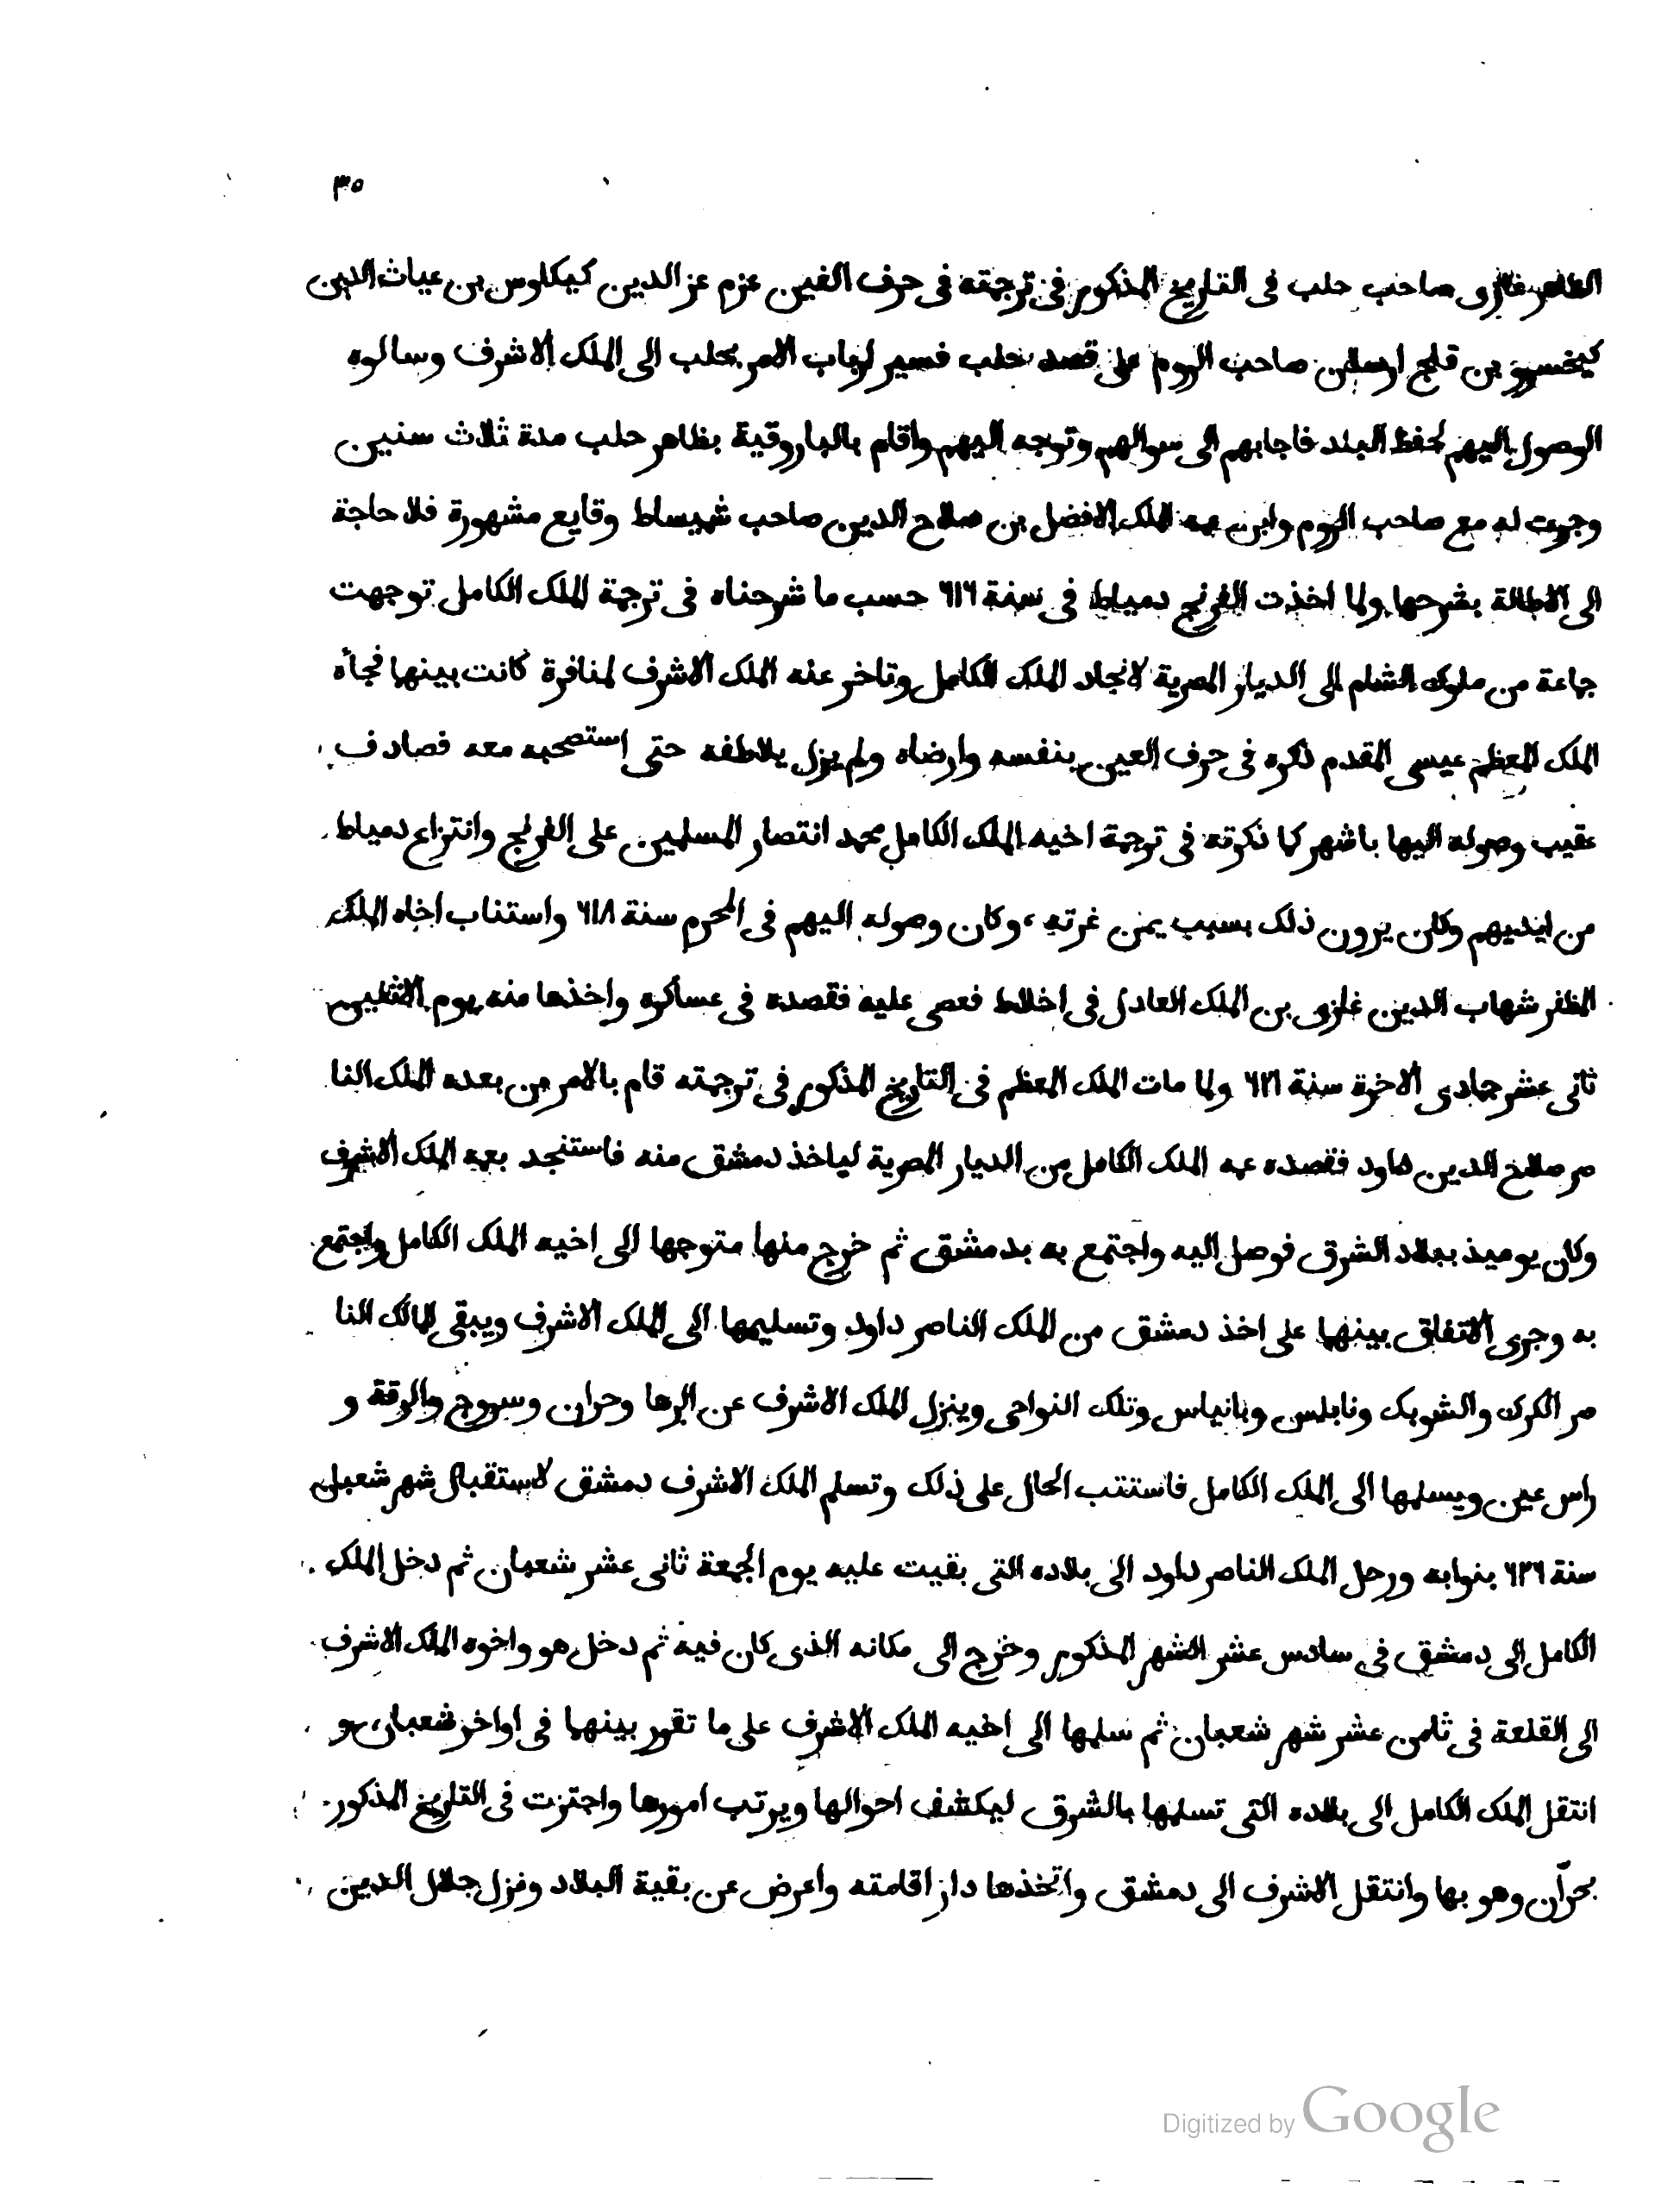 ٣٥
الظاهر غازى صاحب حلب فى التاريخ المذكور فى ترجمته فى حرف الغين عزم عز الدين كيكاوس بن غياث الدين
كيخسرو بن قلج ارسلان صاحب الروم على قصد حلب فسير ارباب الامر بحلب الى الملك الاشرف وسالوه
الوصول اليهم لحفظ البلد فاجابهم الى سوالهم وتوجه اليهم واقام بالياروقية بظاهر حلب مدة ثلاث سنين
وجرت له مع صاحب الروم وابن عمه الملك الافضل بن صلاح الدين صاحب شميساط وقايع مشهورة فلا حاجة
الى الاطالة بشرحها ولما اخذت الفرنج دمياط فى سنة ٦١٦ حسب ما شرحناه فى ترجمة الملك الكامل توجهت
جماعة من ملوك الشام الى الديار المصرية لانجاد الملك الكامل وتاخر عنه الملك الاشرف لمنافرة كانت بينهما فجأه
الملك المعظم عيسى المقدم ذكره فى حرف العين بنفسه وارضاه ولم يزل يلاطفه حتى استصحبه معه فصادف
عقيب وصوله اليها باشهر كما ذكرته فى ترجمة اخيه الملك الكامل محمد انتصار المسلمين على الفرنج وانتزاع دمياط
من ايديهم وكان يرون ذلك بسبب يمن غرته، وكان وصوله اليهم فى المحرم سنة ٦١٨ واستناب اخاه الملك
المظفر شهاب الدين غازى بن الملك العادل فى اخلاط فعصى عليه فقصده فى عساكره واخذها منه يوم الاثنين
ثانى عشر جمادى الاخرة سنة ٦٢١ ولما مات الملك المعظم فى التاريخ المذكور فى ترجمته قام بالامر من بعده الملك النا
صر صلاح الدين داود فقصده عمه الملك الكامل من الديار المصرية لياخذ دمشق منه فاستنجد بعمه الملك الاشرف
وكان يوميذ ببلاد الشرق فوصل اليه واجتمع به بدمشق ثم خرج منها متوجها الى اخيه الملك الكامل واجتمع
به وجرى الاتفاق بينهما على اخذ دمشق من الملك الناصر داود وتسليمها الى الملك الاشرف ويبقى للمالك النا
صر الكرك والشوبك ونابلس وبانياس وتلك النواحى وينزل الملك الاشرف عن الرها وحران وسروج والرقة و
راس عين ويسلمها الى الملك الكامل فاستتب الحال على ذلك وتسلم الملك الاشرف دمشق لاستقبال شهر شعبان
سنة ٦٢٦ بنوابه ورحل الملك الناصر داود الى بلاده التى بقيت عليه يوم الجمعة ثانى عشر شعبان ثم دخل الملك
الكامل الى دمشق فى سادس عشر الشهر المذكور وخرج الى مكانه الذى كان فيه ثم دخل هو واخوه الملك الاشرف
الى القلعة فى ثامن عشر شهر شعبان ثم سلمها الى اخيه الملك الاشرف على ما تقرر بينهما فى اواخر شعبان، و
انتقل الملك الكامل الى بلاده التى تسلمها بالشرق ليكشف احوالها ويرتب امورها واجتزت فى التاريخ المذكور
بحرّان وهو بها وانتقل الاشرف الى دمشق واتخذها دار اقامته واعرض عن بقية البلاد ونزل جلال الدين
Digitized by Google